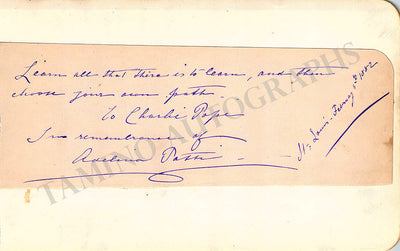 Learn all that there is to learn, and then
choose your own path.
To Charlie Pope
In remembrance of
Adelina Patti
St Louis
1882
TAMINO AUTOGRAPHS